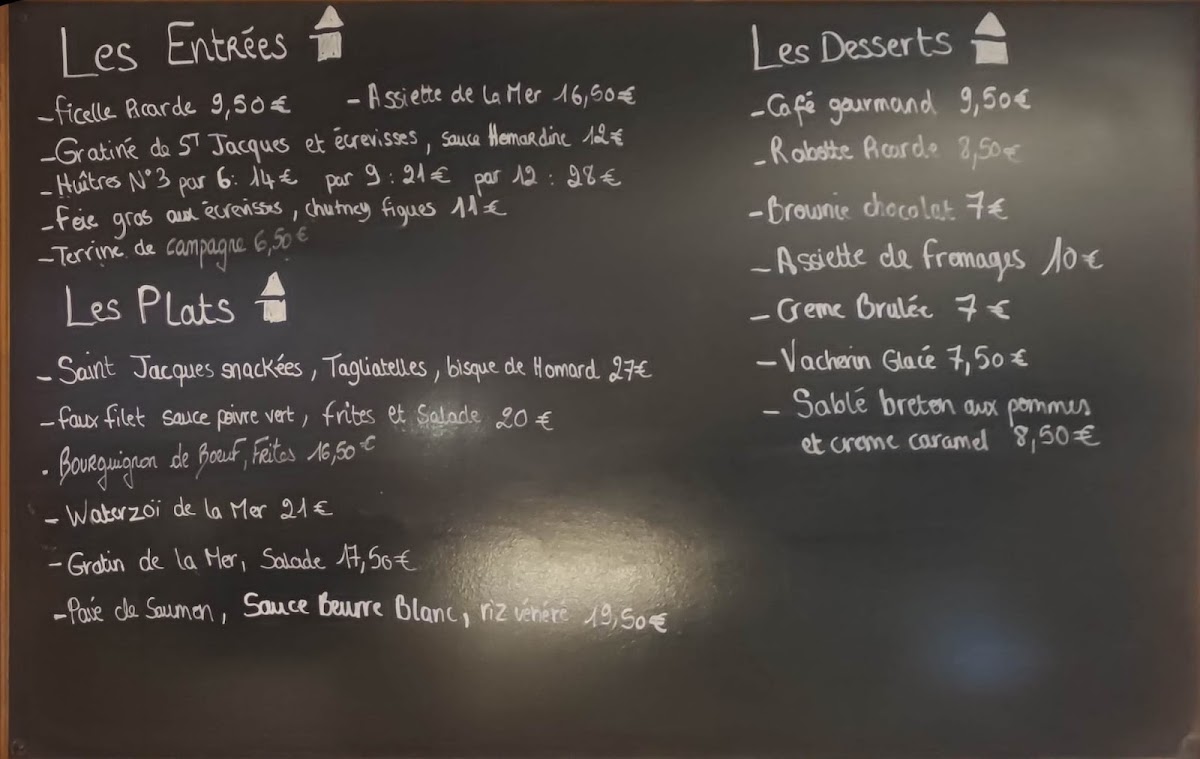 Les Entrées
- Ficelle Picarde 9,50€
- Assiette de la Mer 16,50€
- Gratiné de ST Jacques et écrevisses, sauce Homardine 12€
- Huîtres N°3 par 6: 14€ par 9: 21€ par 12: 28€
- Foie gras aux écrevisses, chutney figues 11€
- Terrine de campagne 6,50€
Les Plats
- Saint Jacques snackées, Tagliatelles, bisque de Homard 27€
- Faux filet sauce poivre vert, frites et Salade 20€
. Bourguignon de Boeuf, Frites 16,50€
- Waterzoï de la Mer 21€
- Gratin de la Mer, Salade 17,50€
- Pavé de Saumon, Sauce Beurre Blanc, riz vénéré 19,50€
Les Desserts
- Café gourmand 9,50€
- Rabotte Picarde 8,50€
- Brownie chocolat 7€
- Assiette de fromages 10€
- Creme Brulée 7€
- Vacherin Glacé 7,50€
- Sablé breton aux pommes
et creme caramel 8,50€